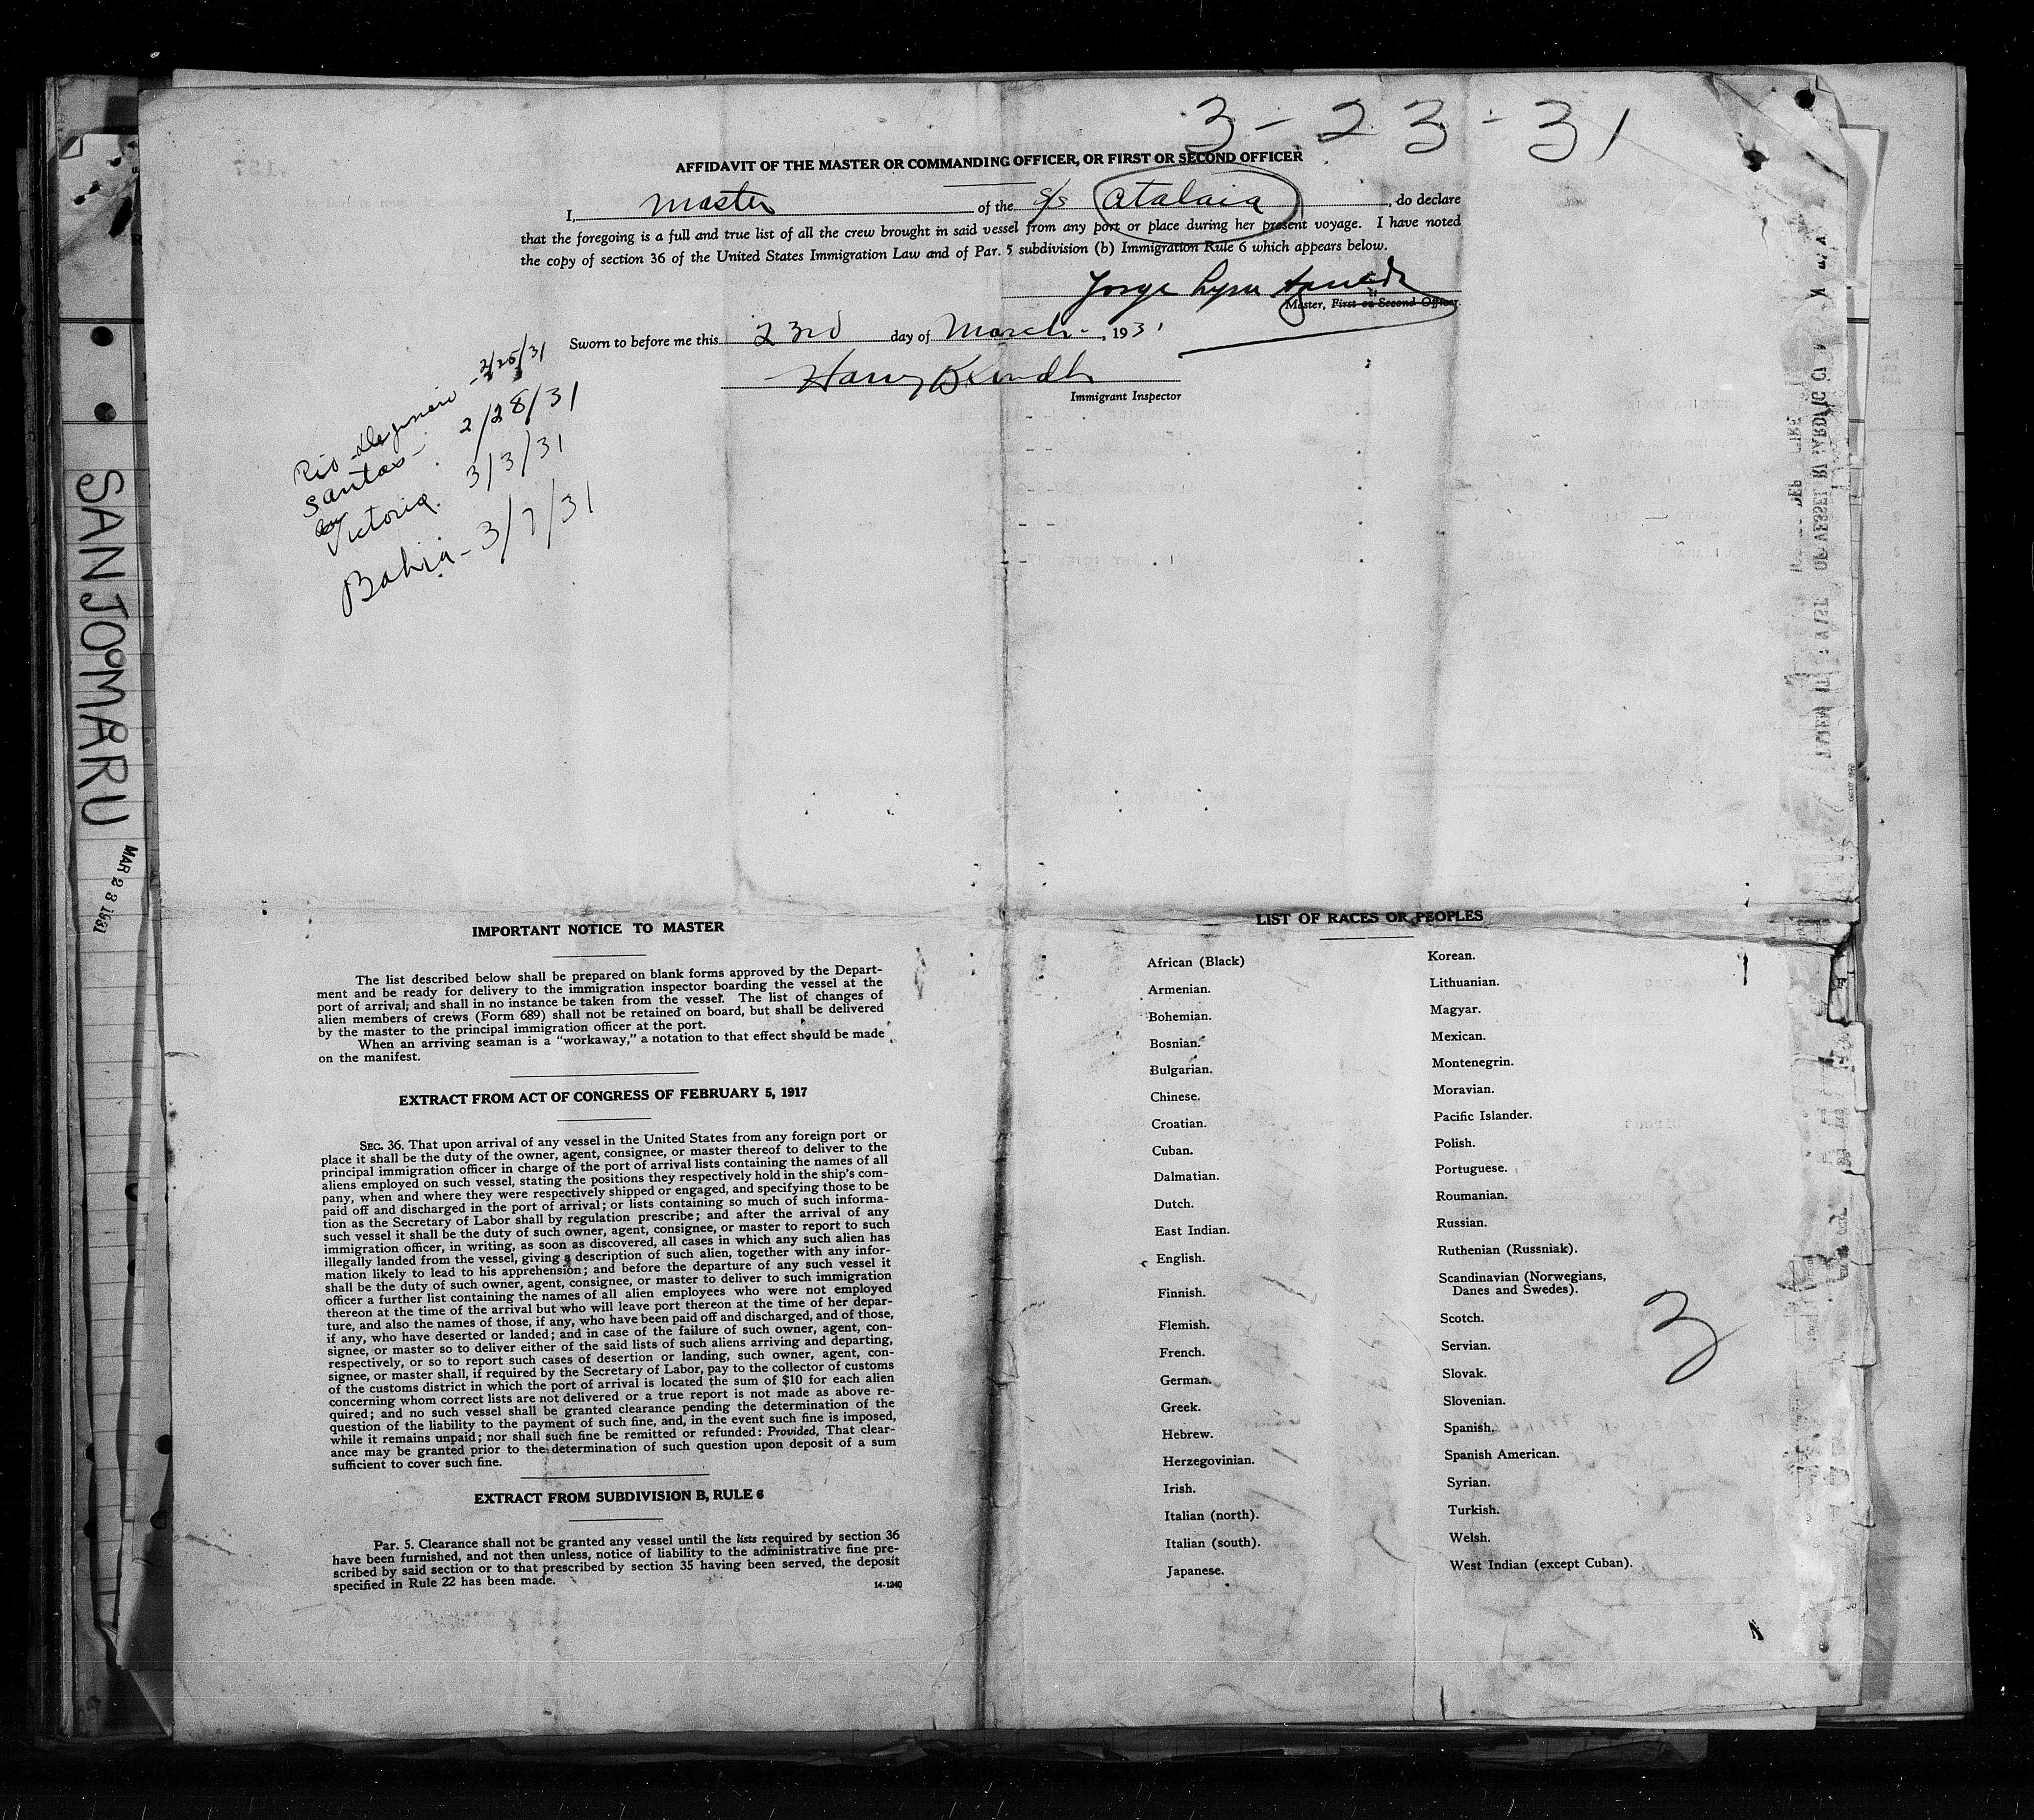 3-23-31
AFFIDAVIT OF THE MASTER OR COMMANDING OFFICER, OR FIRST OR SECOND OFFICER
I, master of the s/s Atalaia, do declare
that the foregoing is a full and true list of all the crew brought in said vessel from any port or place during her present voyage. I have noted
the copy of section 36 of the United States Immigration Law and of Par. 5 subdivision (b) Immigration Rule 6 which appears below.
Jorge
Master, First or Second Officer.
Sworn to before me this 23rd day of March, 1931
Harry
Immigrant Inspector
Rio de Janeiro - 2/25/31
Santos - 2/28/31
Victoria. 3/3/31
Bahia - 3/7/31
SANJOMARU
MAR 23 1931
IMPORTANT NOTICE TO MASTER
The list described below shall be prepared on blank forms approved by the Depart-
ment and be ready for delivery to the immigration inspector boarding the vessel at the
port of arrival; and shall in no instance be taken from the vessel. The list of changes of
alien members of crews (Form 689) shall not be retained on board, but shall be delivered
by the master to the principal immigration officer at the port.
When an arriving seaman is a "workaway," a notation to that effect should be made
on the manifest.
EXTRACT FROM ACT OF CONGRESS OF FEBRUARY 5, 1917
SEC. 36. That upon arrival of any vessel in the United States from any foreign port or
place it shall be the duty of the owner, agent, consignee, or master thereof to deliver to the
principal immigration officer in charge of the port of arrival lists containing the names of all
aliens employed on such vessel, stating the positions they respectively hold in the ship's com-
pany, when and where they were respectively shipped or engaged, and specifying those to be
paid off and discharged in the port of arrival; or lists containing so much of such informa-
tion as the Secretary of Labor shall by regulation prescribe; and after the arrival of any
such vessel it shall be the duty of such owner, agent, consignee, or master to report to such
immigration officer, in writing, as soon as discovered, all cases in which any such alien has
illegally landed from the vessel, giving a description of such alien, together with any infor-
mation likely to lead to his apprehension; and before the departure of any such vessel it
shall be the duty of such owner, agent, consignee, or master to deliver to such immigration
officer a further list containing the names of all alien employees who were not employed
thereon at the time of the arrival but who will leave port thereon at the time of her depar-
ture, and also the names of those, if any, who have been paid off and discharged, and of those,
if any, who have deserted or landed; and in case of the failure of such owner, agent, con-
signee, or master so to deliver either of the said lists of such aliens arriving and departing,
respectively, or so to report such cases of desertion or landing, such owner, agent, con-
signee, or master shall, if required by the Secretary of Labor, pay to the collector of customs
of the customs district in which the port of arrival is located the sum of $10 for each alien
concerning whom correct lists are not delivered or a true report is not made as above re-
quired; and no such vessel shall be granted clearance pending the determination of the
question of the liability to the payment of such fine, and, in the event such fine is imposed,
while it remains unpaid; nor shall such fine be remitted or refunded: Provided, That clear-
ance may be granted prior to the determination of such question upon deposit of a sum
sufficient to cover such fine.
EXTRACT FROM SUBDIVISION B, RULE 6
Par. 5. Clearance shall not be granted any vessel until the lists required by section 36
have been furnished, and not then unless, notice of liability to the administrative fine pre-
scribed by said section or to that prescribed by section 35 having been served, the deposit
specified in Rule 22 has been made.
14-1240
LIST OF RACES OR PEOPLES
African (Black)
Armenian.
Bohemian.
Bosnian.
Bulgarian.
Chinese.
Croatian.
Cuban.
Dalmatian.
Dutch.
East Indian.
English.
Finnish.
Flemish.
French.
German.
Greek.
Hebrew.
Herzegovinian.
Irish.
Italian (north).
Italian (south).
Japanese.
Korean.
Lithuanian.
Magyar.
Mexican.
Montenegrin.
Moravian.
Pacific Islander.
Polish.
Portuguese.
Roumanian.
Russian.
Ruthenian (Russniak).
Scandinavian (Norwegians,
Danes and Swedes).
Scotch.
Servian.
Slovak.
Slovenian.
Spanish.
Spanish American.
Syrian.
Turkish.
Welsh.
West Indian (except Cuban).
3